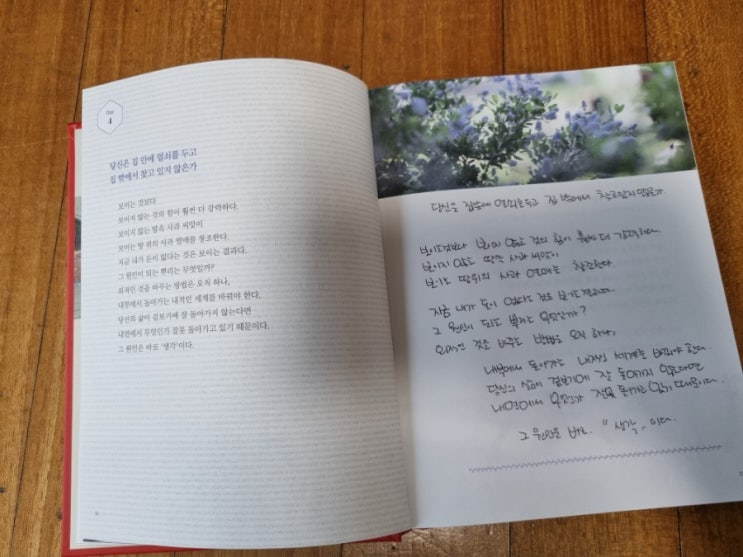 4
당신은 집 안에 열쇠를 두고
집 밖에서 찾고 있지 않은가
보이는 것보다
보이지 않는 것의 힘이 훨씬 더 강력하다.
보이지 않는 땅속 사과 씨앗이
보이는 땅 위의 사과 열매를 창조한다.
지금 내가 돈이 없다는 것은 보이는 결과다.
그 원인이 되는 뿌리는 무엇일까?
외적인 것을 바꾸는 방법은 오직 하나,
내부에서 돌아가는 내적인 세계를 바꿔야 한다.
당신의 삶이 겉보기에 잘 돌아가지 않는다면
내면에서 무엇인가 잘못 돌아가고 있기 때문이다.
그 원인은 바로 '생각'이다.
당신은 집안에 열쇠를 두고 집 밖에서 찾고있지 않은가
보이는것보다 보이지 않는 것의 힘이 훨씬 더 강력하다.
보이지 않는 땅속 사과 씨앗이
보이는 땅위의 사과 열매를 창조한다.
지금 내가 돈이 없다는 것은 보이는 결과다.
그 원인이 되는 뿌리는 무엇일까?
외적인 것을 바꾸는 방법은 오직 하나,
내부에서 돌아가는 내적인 세계를 바꿔야 한다.
당신의 삶이 겉보기에 잘 돌아가지 않는다면
내면에서 무엇인가 잘못 돌아가고 있기 때문이다.
그 원인은 바로 "생각" 이다.